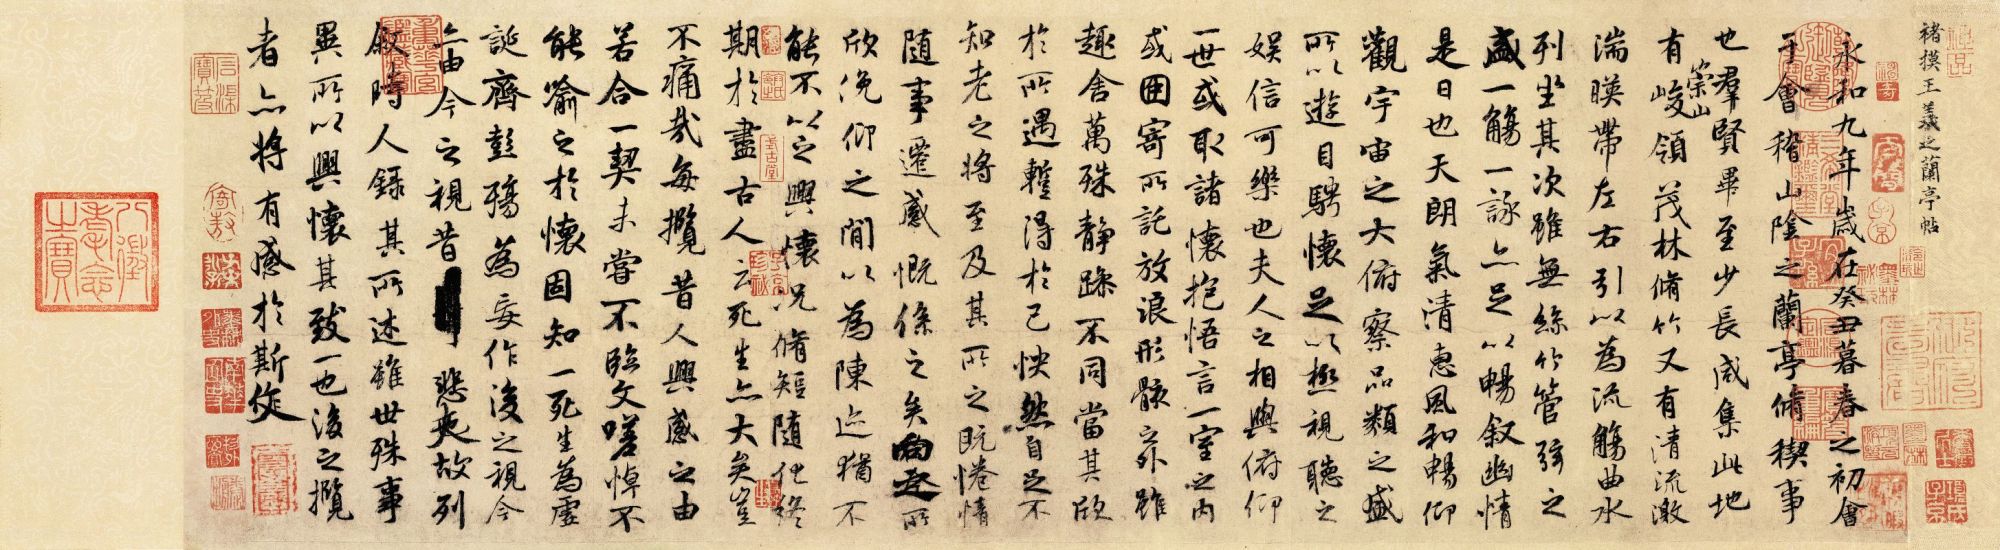 褚摸王羲之蘭亭帖
永和九年歲在癸丑暮春之初會
于會稽山陰之蘭亭脩稧事
也羣賢畢至少長咸集此地
有崇山峻領茂林脩竹又有清流激
湍暎帶左右引以為流觴曲水
列坐其次雖無絲竹管弦之
盛一觴一詠亦足以暢叙幽情
是日也天朗氣清惠風和暢仰
觀宇宙之大俯察品類之盛
所以遊目騁懷足以極視聽之
娛信可樂也夫人之相與俯仰
一世或取諸懷抱悟言一室之內
或因寄所託放浪形骸之外雖
趣舍萬殊静躁不同當其欣
於所遇蹔得於己怏然自足不
知老之將至及其所之既惓情
隨事遷感慨係之矣向之所
欣俛仰之閒以為陳迹猶不
能不以之興懷況脩短隨化終
期於盡古人云死生亦大矣豈
不痛哉每攬昔人興感之由
若合一契未嘗不臨文嗟悼不
能喻之於懷固知一死生為虛
誕齊彭殤為妄作後之視今
亦由今之視昔悲夫故列
敘時人錄其所述雖世殊事
異所以興懷其致一也後之攬
者亦將有感於斯作
八徵耄念之寶
式古堂